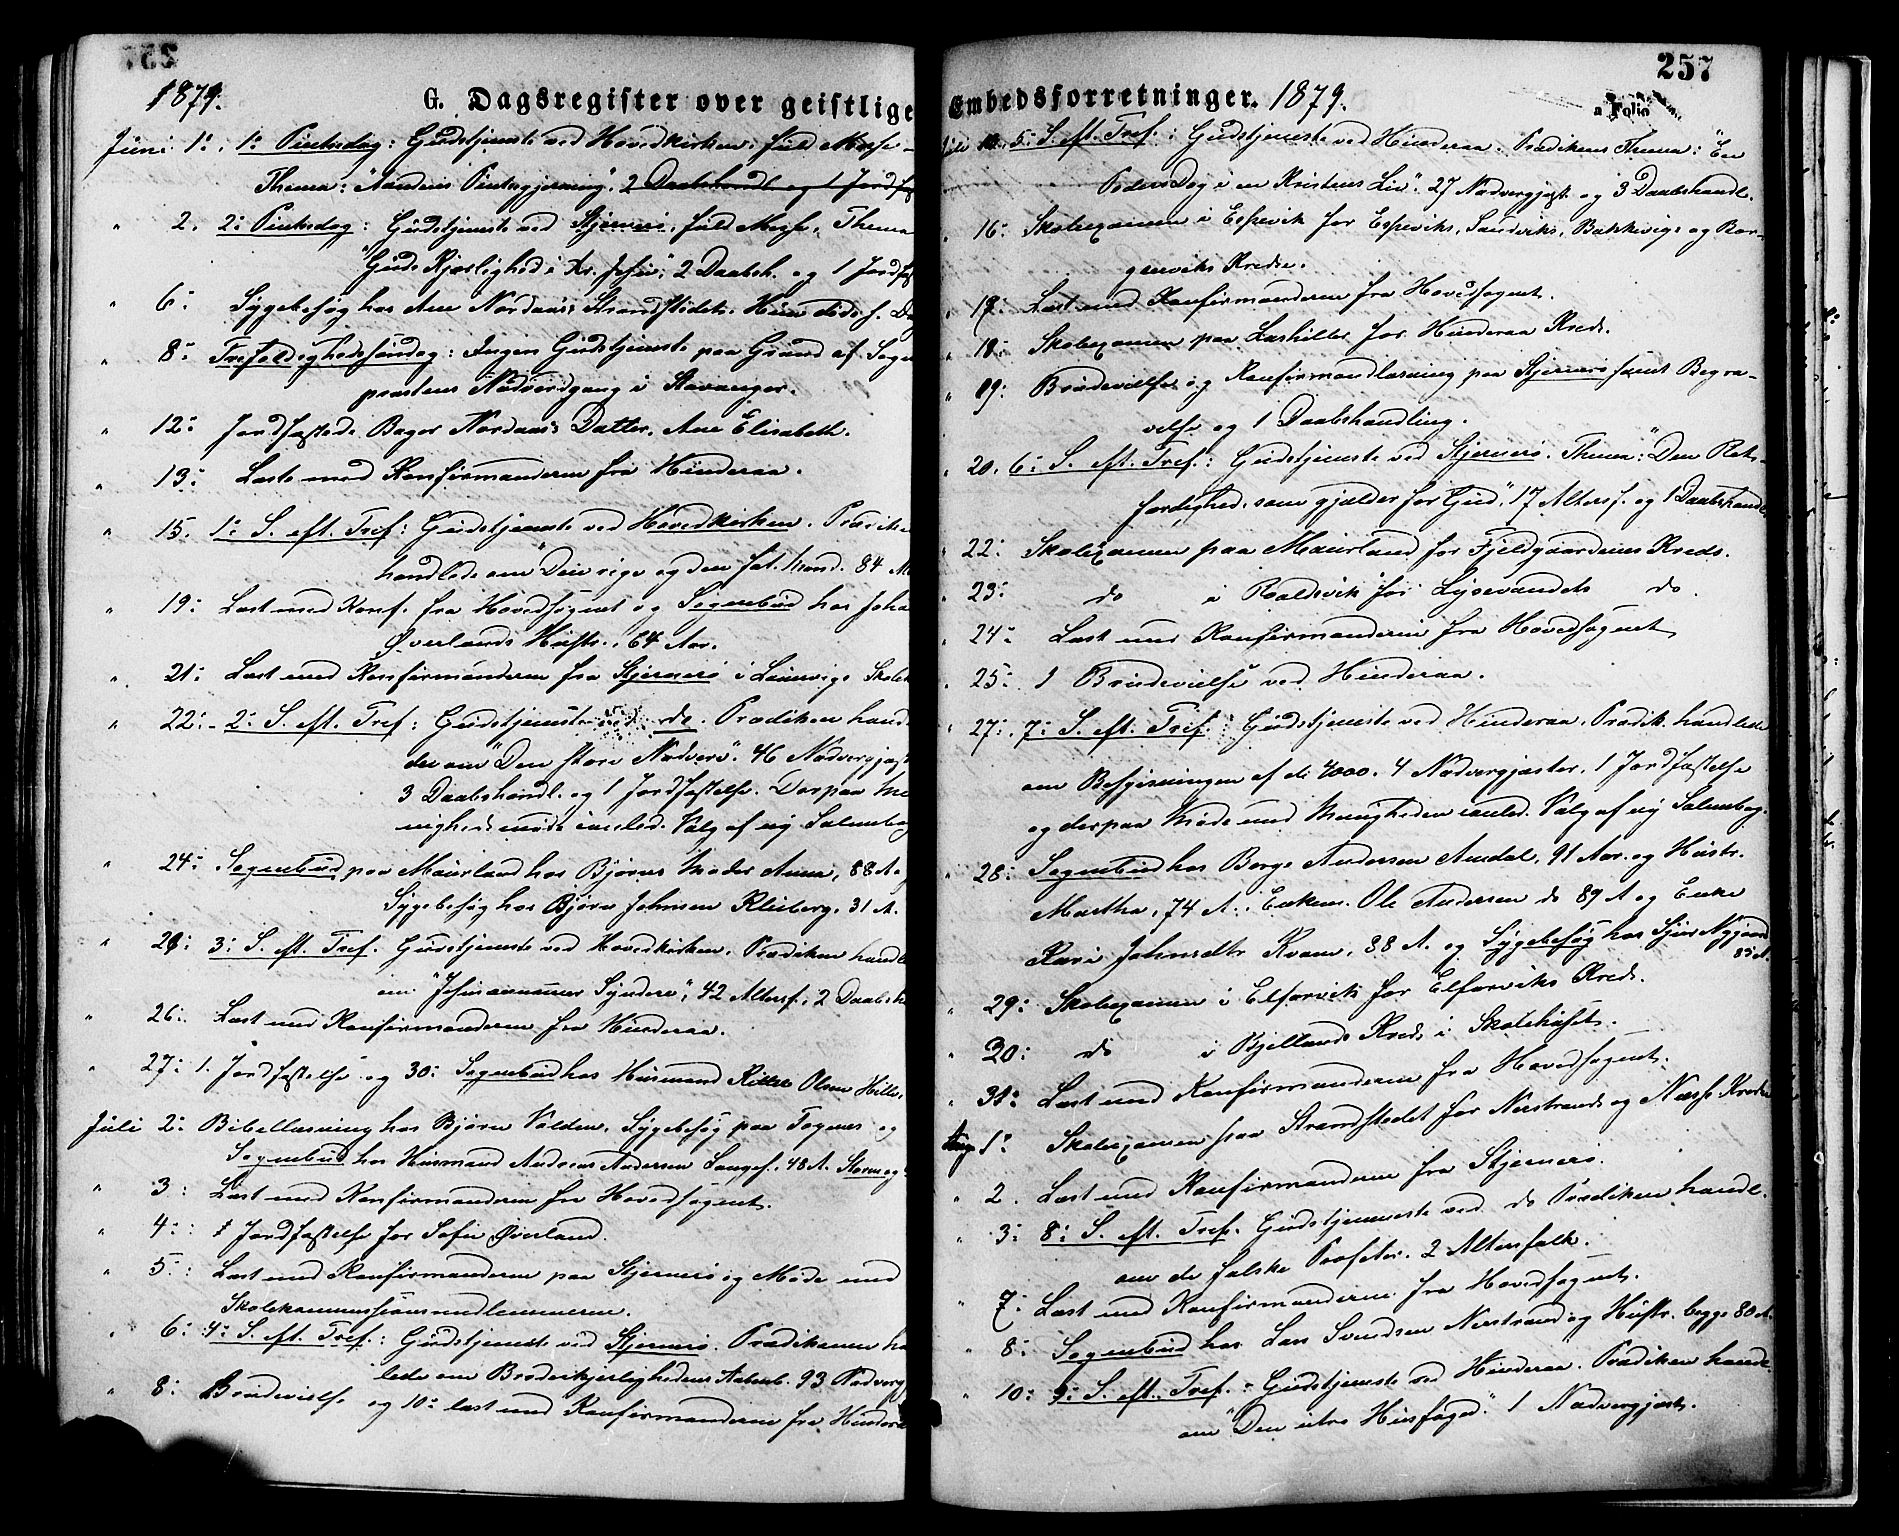 1879.
G. Dagsregister over geistlige
Juni 1ᵒ. 1ᵒ Pintsdag: Gudstjeneste ved Hovedkirken: fuld Messe –
Thema: "Aandens Pintsegjerning". 2 Daabshandl. og 1 Jordf
" 2. 2ᵒ Pintsdag: Gudstjeneste ved Stjernerö. fuld Messe. Thema
"Guds Kjærlighed i Kr. Jesu"; 2 Daabsh. og 1 Jordf
" 6ᵒ Sygebesøg hos Ane Nordaas Strandstedet. Hun døde s. D
" 8ᵒ Trefoldighedssøndag: Ingen Gudstjeneste paa Grund af Sogne
præstens Nadvergang i Stavanger.
" 12ᵒ Jordfæstede Bager Nordaas's Datter, Ane Elisabeth.
" 13ᵒ Læste med Konfirmanderne fra Hinderaa.
" 15. 1ᵒ S. eft. Tref: Gudstjeneste ved Hovedkirken. Prædike
handlede om "Den rige og den fat. Mand. 84
" 19ᵒ Læst med Konf. fra Hovedsognet og Sognebud hos Joha
Överlands Hustr. 64 Aar.
" 21ᵒ Læst med Konfirmanderne fra Stjernerö i Skole
" 22ᵒ – 2ᵒ S. eft. Tref: Gudstjeneste ved do. Prædiken hand
der om "Den store Nadvere". 46 Nadvergjæst
3 Daabshandl. og 1 Jordfæstelse. Derpaa Me
nighedsmöde Valg af ny Salmebog
" 24ᵒ Sognebud paa Maurland hos Bjørns Moder Anna, 88 A.
Sygebesøg hos Bjørn Johnsen Kleiberg, 31 A.
" 29ᵒ 3ᵒ S. eft. Tref. Gudstjeneste ved Hovedkirken, Prædiken handle
om "Jesus annammer Syndere"; 42 Altersf., 2 Daabsh
" 26ᵒ. Læst med Konfirmanderne fra Hinderaa.
" 27ᵒ 1. Jordfæstelse og 30ᵒ Sognebud hos Husmand Olsen Hille.
Juli 2ᵒ Bibellæsning hos Bjørn Valdem, Sygebesøg paa og
Sognebud hos Husmand Andreas Andersen 48 A.
" 3ᵒ Læst med Konfirmanderne fra Hovedsognet.
" 4ᵒ: 1 Jordfæstelse for Sofie Øverland.
" 5ᵒ: Læst med Konfirmanderne paa Stjernerö og Møde med
Skolekommissionsmedlemmerne.
" 6ᵒ 4ᵒ S. eft. Tref.: Gudstjeneste ved Stjernerö. Prædikenen ha
lede om Broderkjærlighedens 93 Nadverg
" 8ᵒ Brudevielse og 10ᵒ læst med Konfirmanderne fra Hinderaa
257
Embedsforretninger. 1879.
a Folio
Juli 5ᵒ S. eft. Tref.: Gudstjeneste ved Hinderaa. Prædikens Thema: "En
Dag i en Kristens Liv". 27 Nadvergjæst. og 3 Daabshandl.
" 16ᵒ Skoleexamen i Espevik for Espeviks, Sandviks, og
Kredse.
" 17ᵒ Læst med Konfirmanderne fra Hovedsognet.
" 18ᵒ Skoleexamen paa for Hinderaa Kreds.
" 19ᵒ Brudevielse og Konfirmandlæsning paa Stjernerö samt Begra-
velse og 1 Daabshandling.
" 20. 6ᵒ S. eft. Tref.: Gudstjeneste ved Stjernerö. Thema: "Den Ret-
færdighed, som gjælder for Gud". 17 Altersf. og 1 Daabshandl
" 22ᵒ Skoleexamen paa Maurland for Fjeldgaardenes Kreds.
" 23ᵒ do i for Lysevandets do.
" 24ᵒ Læst med Konfirmanderne fra Hovedsognet
" 25ᵒ 1 Brudevielse ved Hinderaa.
" 27ᵒ. 7ᵒ S. eft. Tref.: Gudstjeneste ved Hinderaa. Prædik. handlede
om Bespisningen af de 4000. 4 Nadvergjæster. 1 Jordfæstelse
og derpaa Møde med Menigheden Valg af ny Salmebog.
" 28ᵒ Sognebud hos Børge Andersen Amdal, 91 Aar. og Hustr.
Martha, 74 A. Enkem. Ole Andersen do 89 A og Enke
Kari Johnsdtr Kvam, 88 A. og Sygebesøg hos Nygaard 83 A.
" 29ᵒ Skoleexamen i Elfarvik for Elfarviks Kreds.
" 30ᵒ do i Bjellands Kreds i Skolehuset.
" 31ᵒ Læst med Konfirmanderne fra Hovedsognet.
Aug. 1ᵒ Skoleexamen paa Strandstedet for Nerstrands og Næss Kredse
" 2. Læst med Konfirmanderne fra Stjernerö.
" 3ᵒ 8ᵒ S. eft. Tref. Gudstjeneste ved do Prædiken handl.
om de falske Profeter. 2 Altersfolk. –
" 7ᵒ Læst med Konfirmanderne fra Hovedsognet.
" 8ᵒ Sognebud hos Lars Svendsen Nerstrand og Hustr. begge 80 A.
" 10ᵒ 9ᵒ S. eft. Tref.: Gudstjeneste ved Hinderaa. Prædiken handl.
om "Den utro Husfoged." 1 Nadvergjæst.